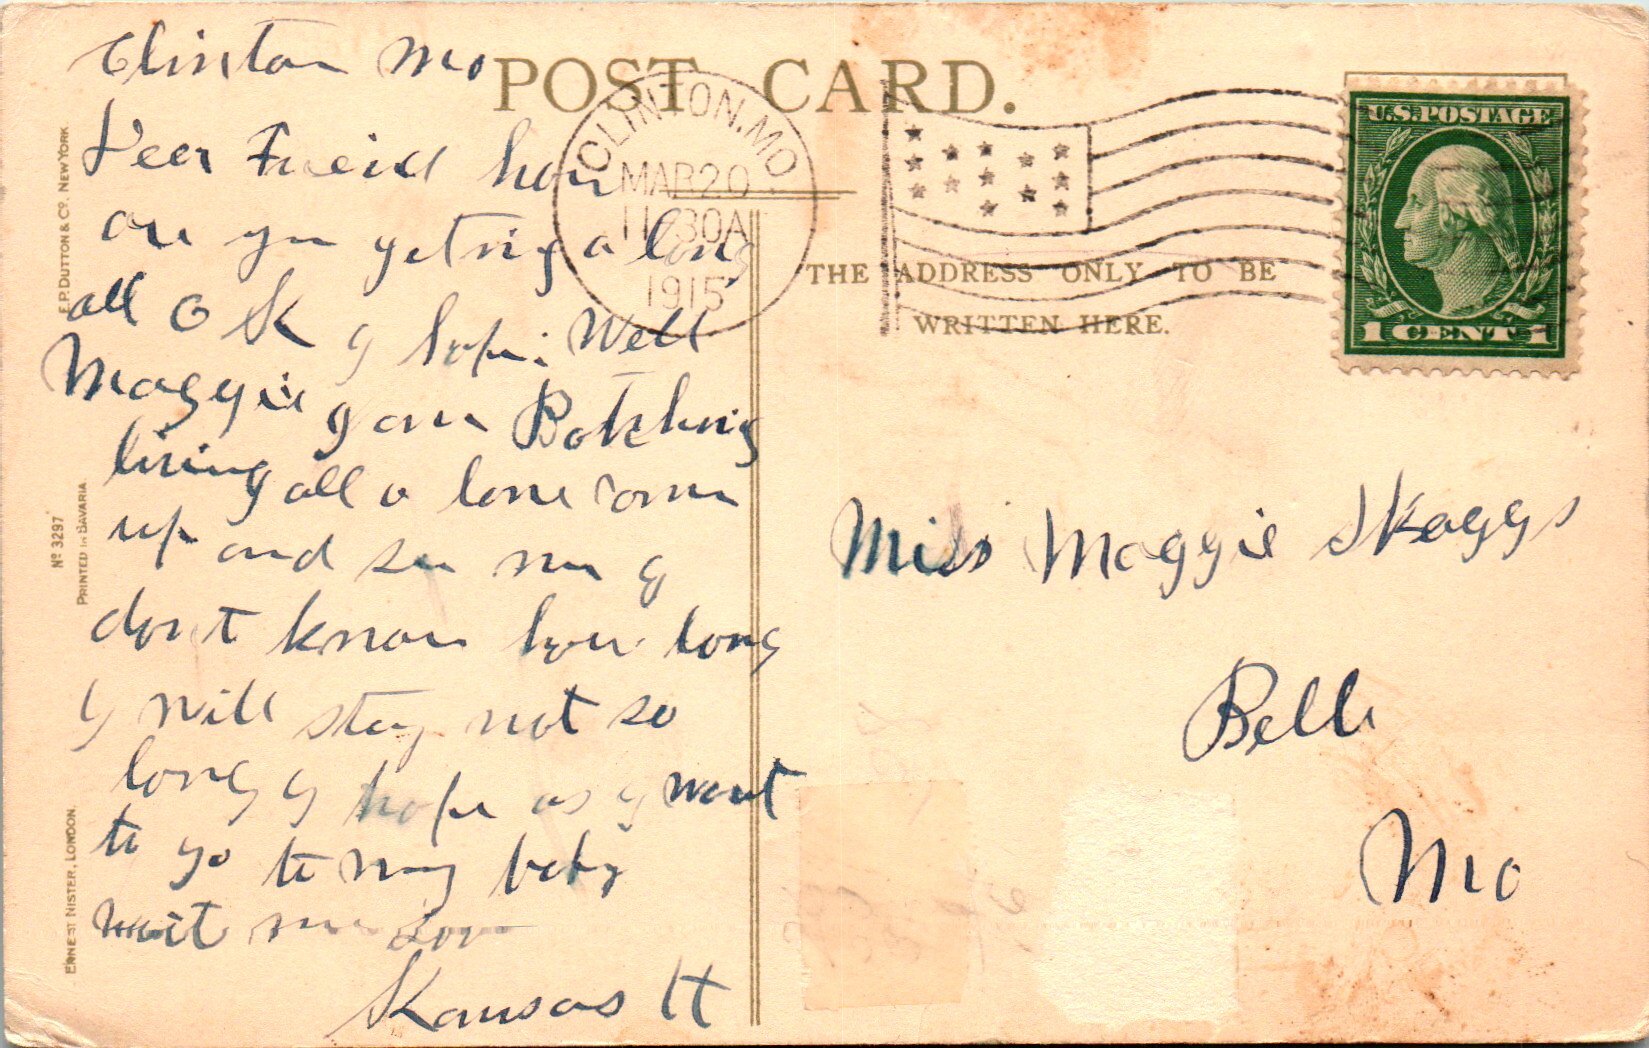 Clinton Mo
POST CARD.
Dear Freind how
are you geting a long
all O K I hope. Well
Maggie I am Batching
living all a lone come
up and see me I
don't know how long
I will stay not so
long I hope as I want
to go to my baby
writ me
Kansas H
CLINTON, MO.
MAR 20
11 30A
1915
U.S. POSTAGE
1 CENT 1
THE ADDRESS ONLY TO BE
WRITTEN HERE.
Miss Maggie Skaggs
Belle
Mo
E.P. DUTTON & Co. NEW YORK
No 3297
PRINTED IN BAVARIA.
ERNEST NISTER, LONDON.